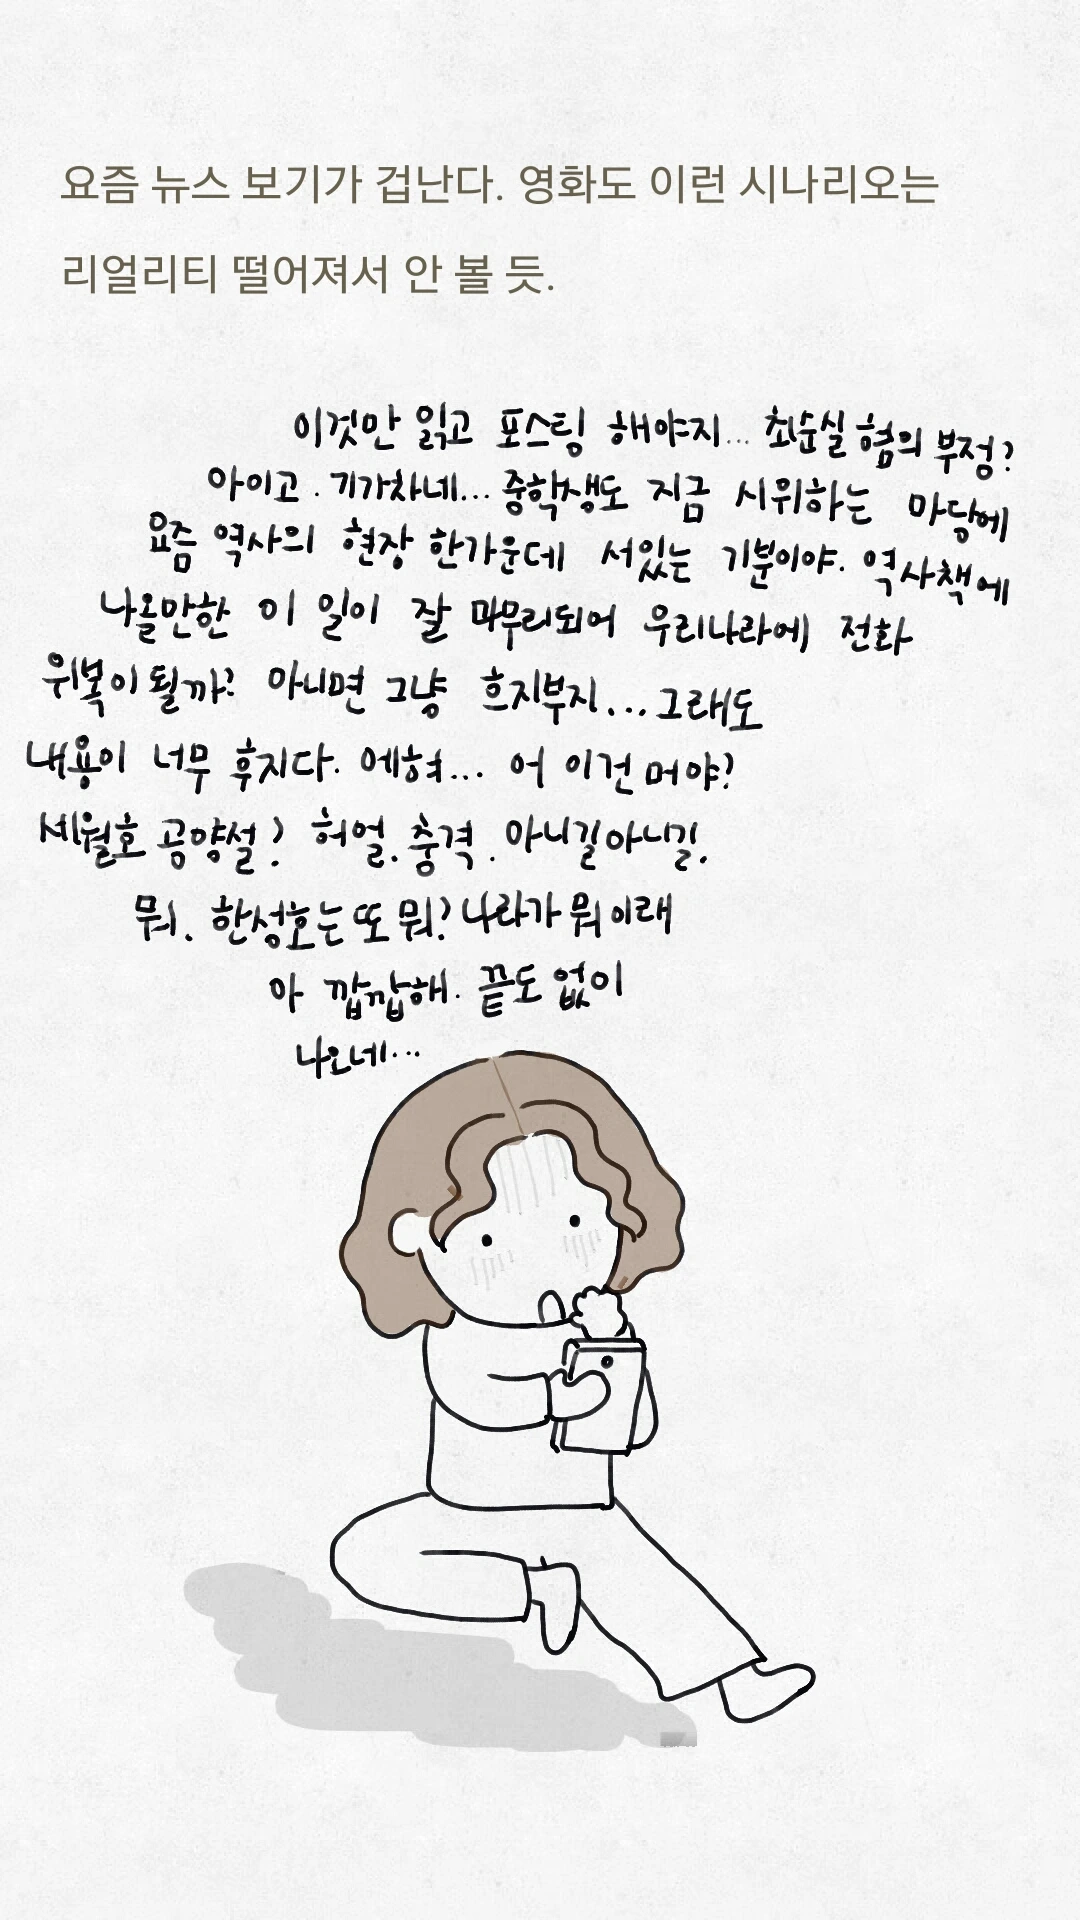 요즘 뉴스 보기가 겁난다. 영화도 이런 시나리오는
리얼리티 떨어져서 안 볼 듯.
이것만 읽고 포스팅 해야지... 최순실 혐의 부정?
아이고. 기가차네... 중학생도 지금 시위하는 마당에
요즘 역사의 현장 한가운데 서있는 기분이야. 역사책에
나올만한 이 일이 잘 마무리되어 우리나라에 전화
위복이 될까? 아니면 그냥 흐지부지... 그래도
내용이 너무 후지다. 에혀... 어 이건 머야?
세월호 공양설? 허얼. 충격. 아니길아니길.
뭐. 한성호는 또 뭐? 나라가 뭐 이래
아 깝깝해. 끝도 없이
나오네...